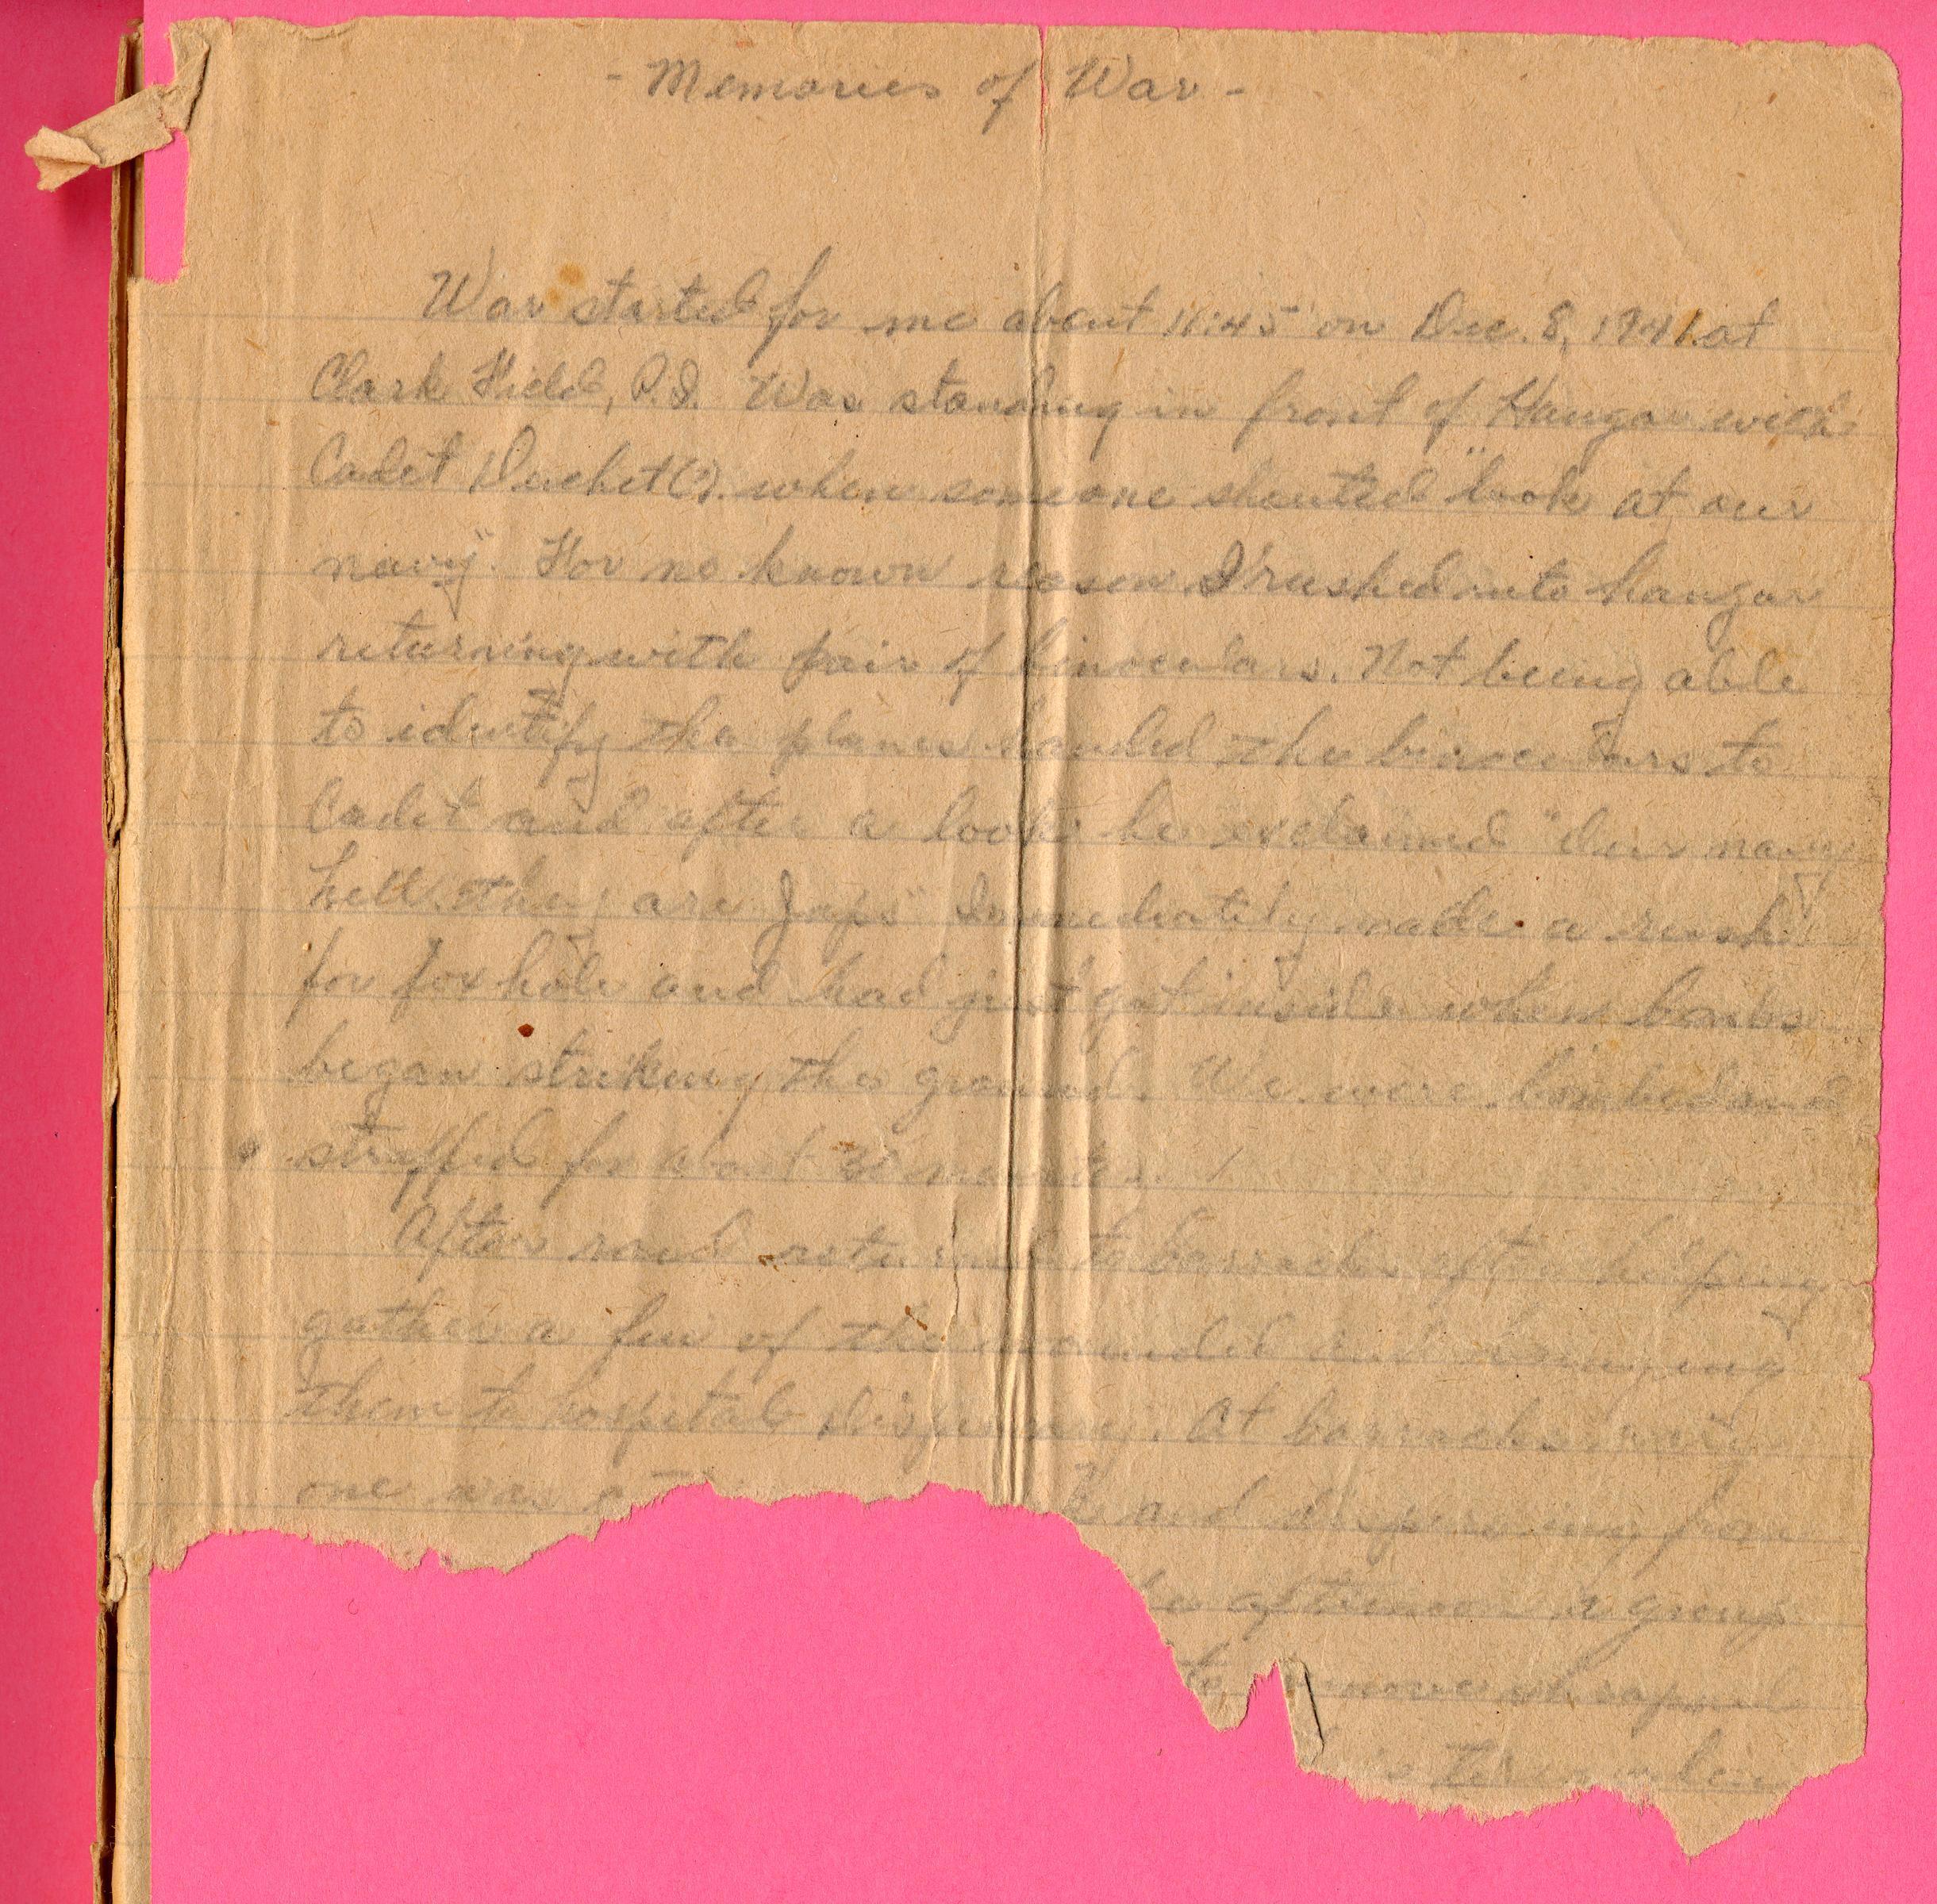 - Memories of War -
War started for me about 11:45 on Dec. 8, 1941 at
Clark Field, P.I. Was standing in front of Hangar with
Cadet Duchet(?). when someone shouted "look at our
navy". For no known reason I rushed into hangar
returning with pair of binoculars. Not being able
to identify the planes handed the binoculars to
Cadet and after a look he exclaimed "Our navy
hell, they are Japs" Immediately made a rush
for fox hole and had just got inside when bombs
began striking the ground. We were bombed and
straffed for about 30 minutes.
After raid returned to barracks after helping
gather a few of the wounded and bringing
them to hospital dispensary. At barracks
one was and dispersing from
afternoon a group
to remove shrapnel